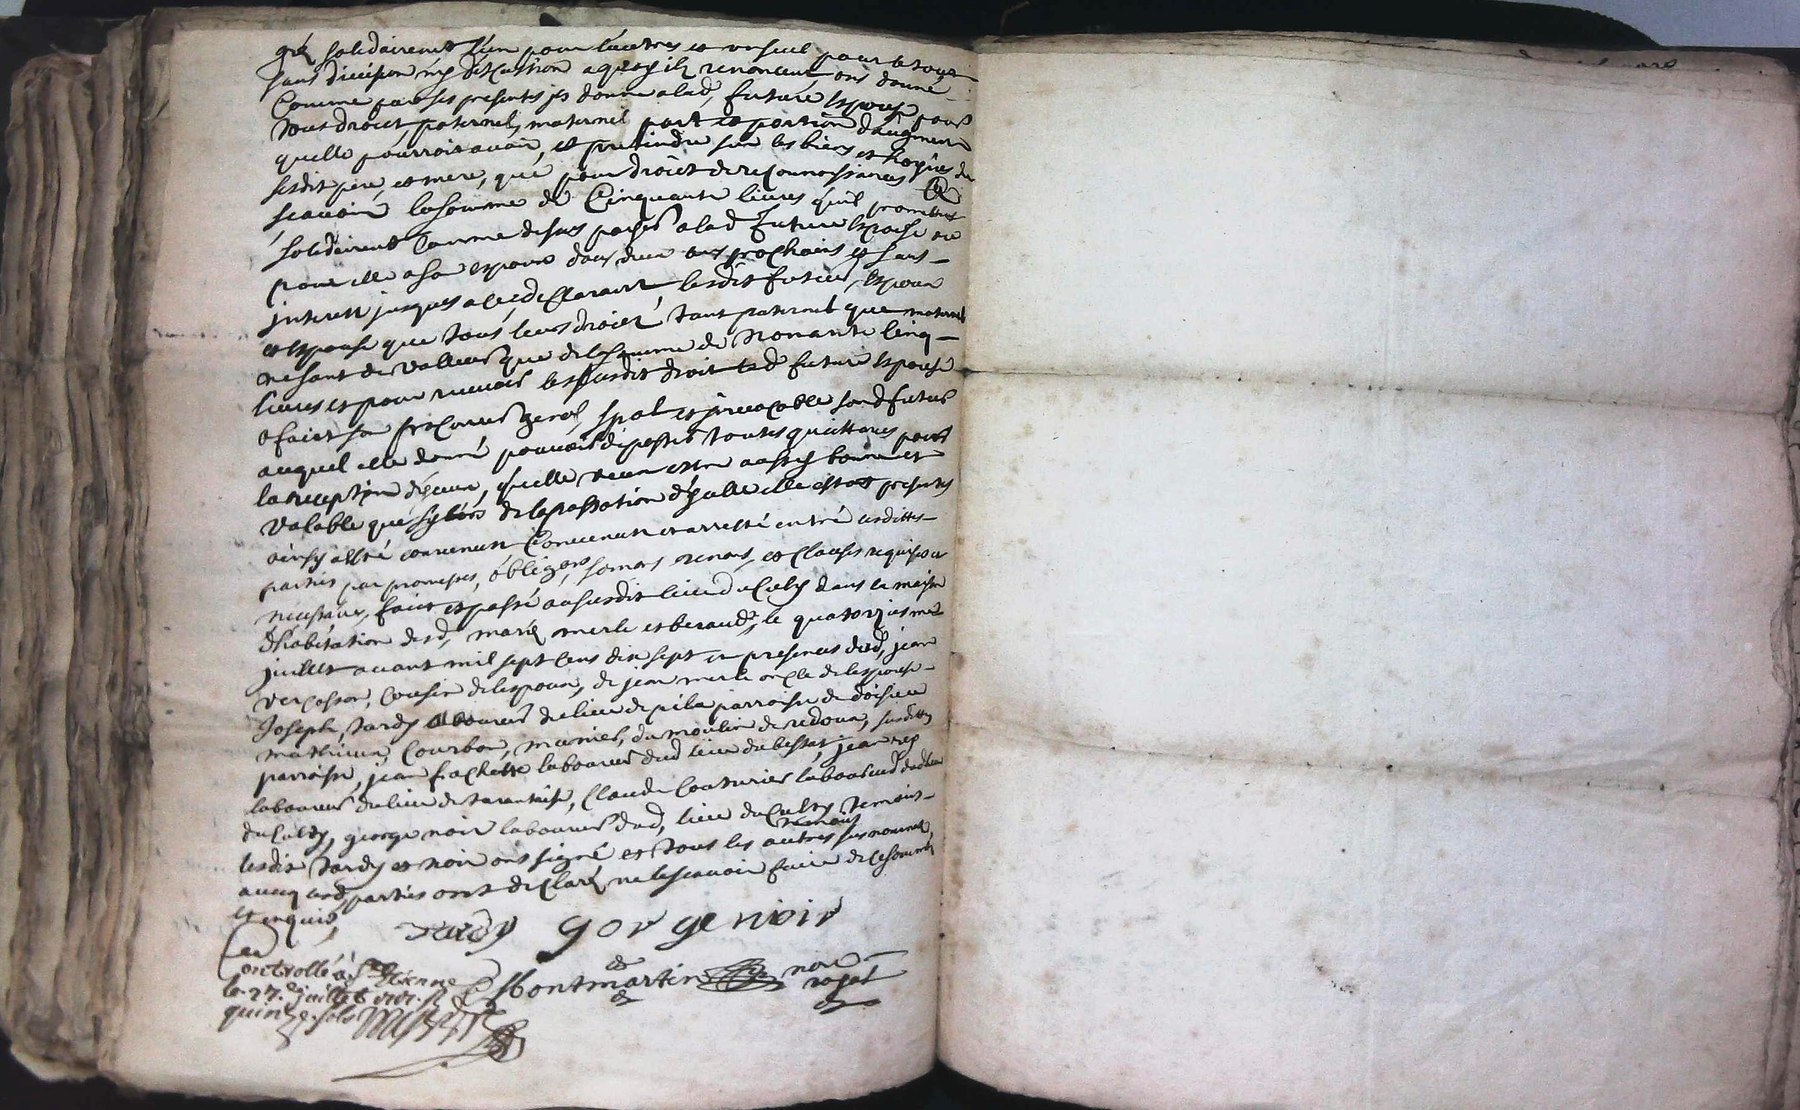 gré solidairement l'un pour l'autres et un seul pour le tout
sans division ny discution a quoy ils renoncent ont donné
Comme par ses presentes ils donne a lad, future espouse pour
tous droits, paternel, maternel part et portion d'augment
quelle pourroit avoir, et pretendre sur les biens et hoyries de
sesdit pere, et mere, que pour droit de reconnoissances
scavoir la somme de Cinquante livres quil promettent
solidairement comme dessus payer a lad future espouse ou
pour elle a son espoux dans deux ans prochains et sans
interest jusques a ce declarant lesdit futeur, espoux
et espouse que tous leurs droict tant paternel que maternel
ne sont de valleur que de la somme de nonante cinq
livres et pour recevoir les susdit droit lad future espouse
a fait son procureur general, spal et irrevocable sond futur
auquel elle donne pouvoir de passer toutes quittances pour
la reception diceux, quelle veux estre aussy bonne et
valable que sy lors de la passation d'icelle elle estoit presentes
ainsy a esté convenu et arresté entre lesdittes
parties par promesses, obligons, somons renons, et clauses requises et
necessaires, fait et passé au susdit lieu du Culty dans la maison
d'habitation desd, mariés merle et beraud, le quatorziesme
juillet avant mil sept cens dix sept en presences dud, jean
vercasson, cousin de lespoux, de jean merle oncle de lespouse
Joseph, tardy laboureur du lieu de pila parroisse de doisieu
mathieux, Courbon, munier, du moulin de redoux, susditte
parroisse, jean frachette laboureur dud lieu du bessat, jean
laboureur du lieu de tarantaise, Claude Couturier laboureur
du Culty, george noir laboureur dud, lieu du Culty temoins
lesdit tardy et noir ont signé et tous les autres temoins sus nommes,
avecq lesd, parties ont declaré ne le scavoir faire de ce sommés
et enquis,
tardy gorge noir
Controllé à St Etienne
le 27e juillet 1717. R
quinze sols
Montmartin nore
royal